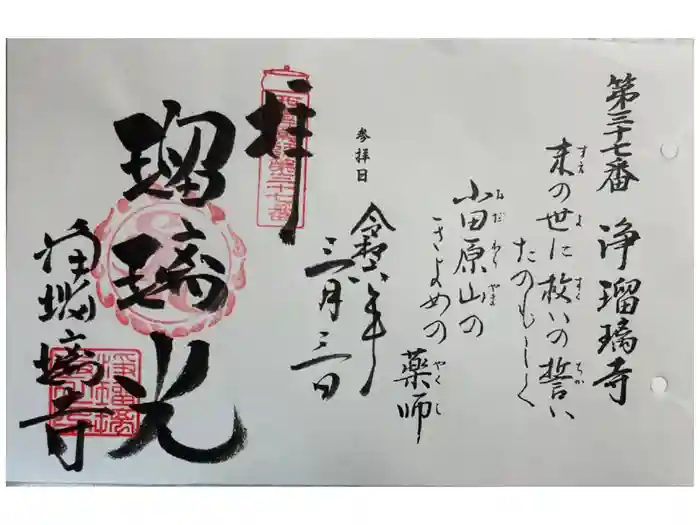 第三十七番 浄瑠璃寺
末の世に救いの誓い
たのもしく
小田原山の
きよめの
薬師
参拝日
令和六年
三月三日
拝
瑠璃光
浄瑠璃寺